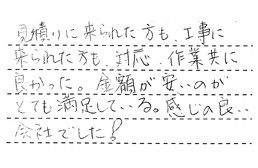 見積りに来られた方も、工事に
来られた方も、対応、作業共に
良かった。金額が安いのが
とても満足している。感じの良い
会社でした!